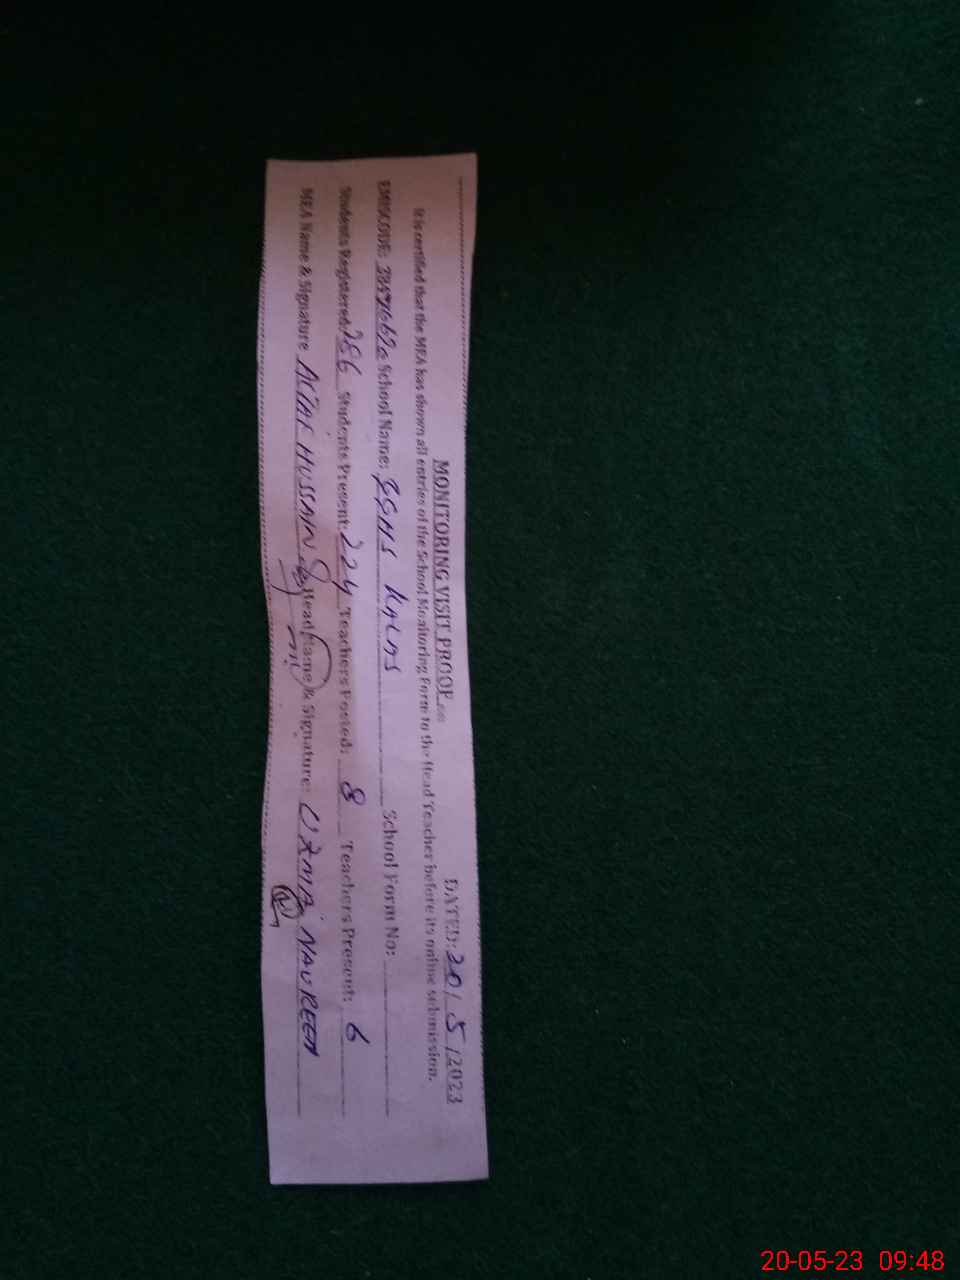 MONITORING VISIT PROOF
DATED: 20/5/2023
It is certified that the MEA has shown all entries of the School Monitoring Form to the Head Teacher before its online submission.
EMISCODE: School Name: GGHS KALAS School Form No:
Students Registered: 286 Students Present: 224 Teachers Posted: 8 Teachers Present: 6
MEA Name & Signature ALTAF HUSSAIN Head Name & Signature: UZMA NAUREEN
20-05-23 09:48